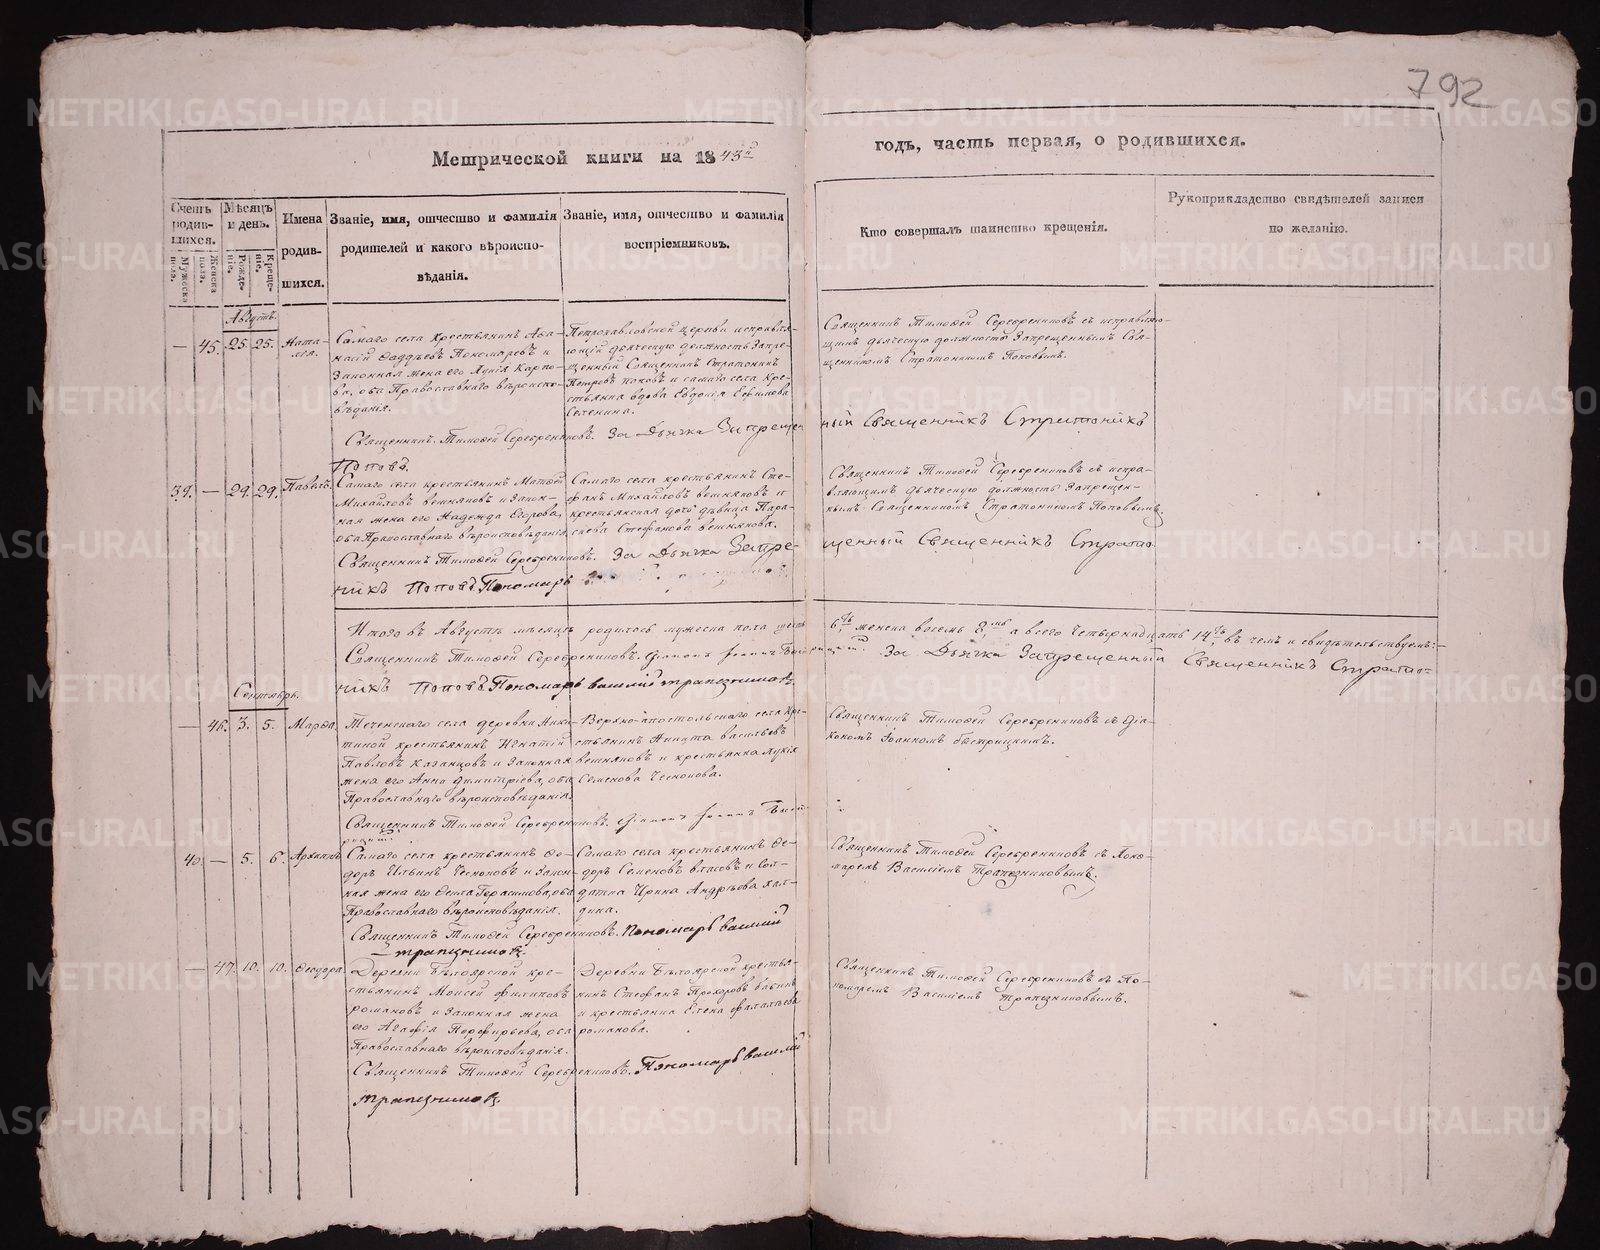 792
Метрической книги на 1843й
годъ, часть первая, о родившихся.
Счетъ родив-
шихся.
Мужеска пола.
Женска пола.
Мѣсяцъ и день.
Рожде-
ніе.
Креще-
ніе.
Имена
родив-
шихся.
Званіе, имя, отчество и фамилія
родителей и какого вѣроиспо-
вѣданія.
Званіе, имя, отчество и фамилія
воспріемниковъ.
Кто совершалъ таинство крещенія.
Рукоприкладство свидѣтелей записи
по желанію.
Августъ.
— 45. 25. 25. Ната-
лія.
Самаго села крестьянинъ Аѳа-
насій Ѳаддѣевъ Пономаревъ и
Законная жена его Лукія Карпо-
ва, оба Православнаго вѣроиспо-
вѣданія.
Петропавловской церкви исправля-
ющій дьяческую должность Запре-
щенный Священникъ Стратоникъ
Петровъ поповъ и самаго села Кре-
стьянка вдова Евдокія Ефимова
Селенина.
Священникъ Тимоѳей Серебренниковъ съ исправляю-
щимъ дьяческую должность Запрещеннымъ Свя-
щенникомъ Стратоникомъ Поповымъ.
Священникъ Тимоѳей Серебренниковъ. За Дьячка Запрещен
ный Священникъ Стратоникъ
Поповъ.
39. — 29. 29. Павелъ.
Самаго села крестьянинъ Матѳей
Михайловъ вешняковъ и Закон-
ная жена его Надежда Егорова,
оба Православнаго вѣроисповѣданія.
Самаго села крестьянинъ Сте-
фанъ Михайловъ вешняковъ и
крестьянская дочь дѣвица Пара-
скева Стефанова вешнякова.
Священникъ Тимоѳей Серебренниковъ съ испра-
вляющимъ дьяческую должность Запрещен-
нымъ Священникомъ Стратоникомъ Поповымъ.
Священникъ Тимоѳей Серебренниковъ. За Дьячка Запре-
щенный Священникъ Страто
никъ Поповъ Пономарь
Итого въ Августѣ мѣсяцѣ родилось мужеска пола шесть
6ть женска восемь 8мь а всего Четырнадцать 14ть въ чемъ и свидѣтельствуемъ:-
Священникъ Тимоѳей Серебренниковъ.
За Дьячка Запрещенный Священникъ Страто-
никъ Поповъ Пономарь василий трапезниковъ.
Сентябрь.
— 46. 3. 5. Марѳа.
Теченскаго села деревни Ники-
тиной крестьянинъ Игнатій
Павловъ Казанцовъ и Законная
жена его Анна Димитріева, оба
Православнаго вѣроисповѣданія.
Верхно-апостольскаго села Кре-
стьянинъ Никита васильевъ
вешняковъ и крестьянка Лукія
Семенова Чеснокова.
Священникъ Тимоѳей Серебренниковъ съ діа-
кономъ Іоанномъ быстрицкимъ.
Священникъ Тимоѳей Серебренниковъ.
40. — 5. 6. Архиппъ
Самаго села крестьянинъ Ѳе-
доръ Ильинъ Чесноковъ и Закон-
ная жена его Ѳекла Герасимова, оба
Православнаго вѣроисповѣданія.
Самаго села крестьянинъ Ѳе-
доръ Семеновъ власовъ и Сол-
датка Ирина Андрѣева Хал-
дина.
Священникъ Тимоѳей Серебренниковъ съ Поно-
маремъ Василіемъ Трапезниковымъ.
Священникъ Тимоѳей Серебренниковъ. Пономарь василий
трапезниковъ.
— 47. 10. 10. Ѳеодора.
Деревни Бѣлоярской кре-
стьянинъ Моисей филиповъ
романовъ и Законная жена
его Агафія Порфирьева, оба
Православнаго вѣроисповѣданія.
Деревни Бѣлоярской крестья-
нинъ Стефанъ Прохоровъ бабинъ
и крестьянка Елена фалалѣева
романова.
Священникъ Тимоѳей Серебренниковъ съ По-
номаремъ Василіемъ Трапезниковымъ.
Священникъ Тимоѳей Серебренниковъ. Пономарь василий
трапезниковъ.
METRIKI.GASO-URAL.RU